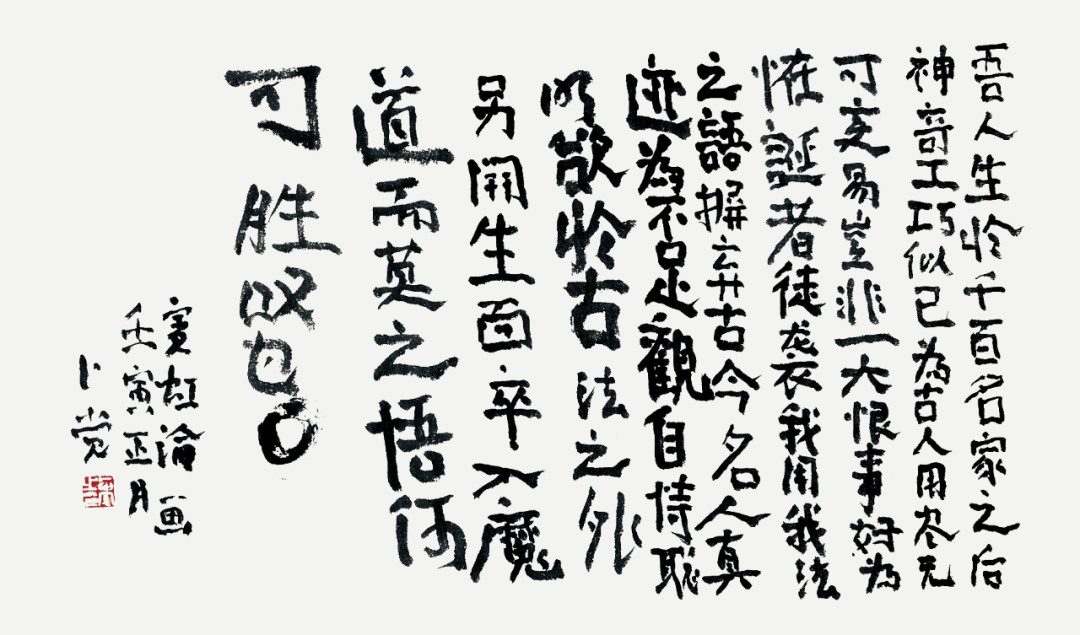 吾人生於千百名家之后
神奇工巧似已为古人用尽无
可变易岂非一大恨事好为
怪誕者徒袭我用我法
之語摒弃古今名人真
迹為不足觀自恃聪
明欲於古法之外
另開生面卒入魔
道而莫之悟何
可胜叹也
賓虹論画
壬寅正月
卜